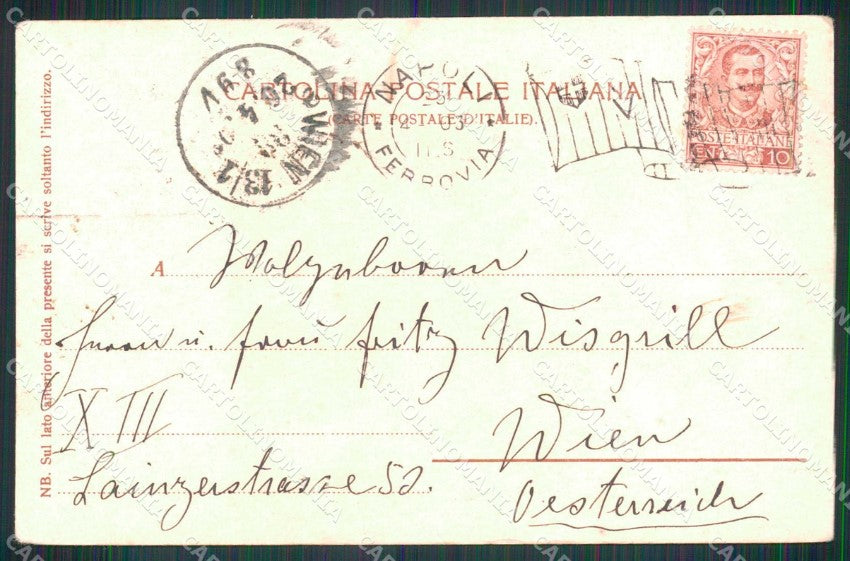 CARTOLINA POSTALE ITALIANA
(CARTE POSTALE D'ITALIE).
NAPOLI
FERROVIA
WIEN
13/1
POSTE ITALIANE
10
A Wolgeboren
Herrn u. Frau Fritz Wisgrill
XIII
Wien
Lainzerstrasse
Oesterreich
NB. Sul lato anteriore della presente si scrive soltanto l'indirizzo.
CARTOLINOMANIA